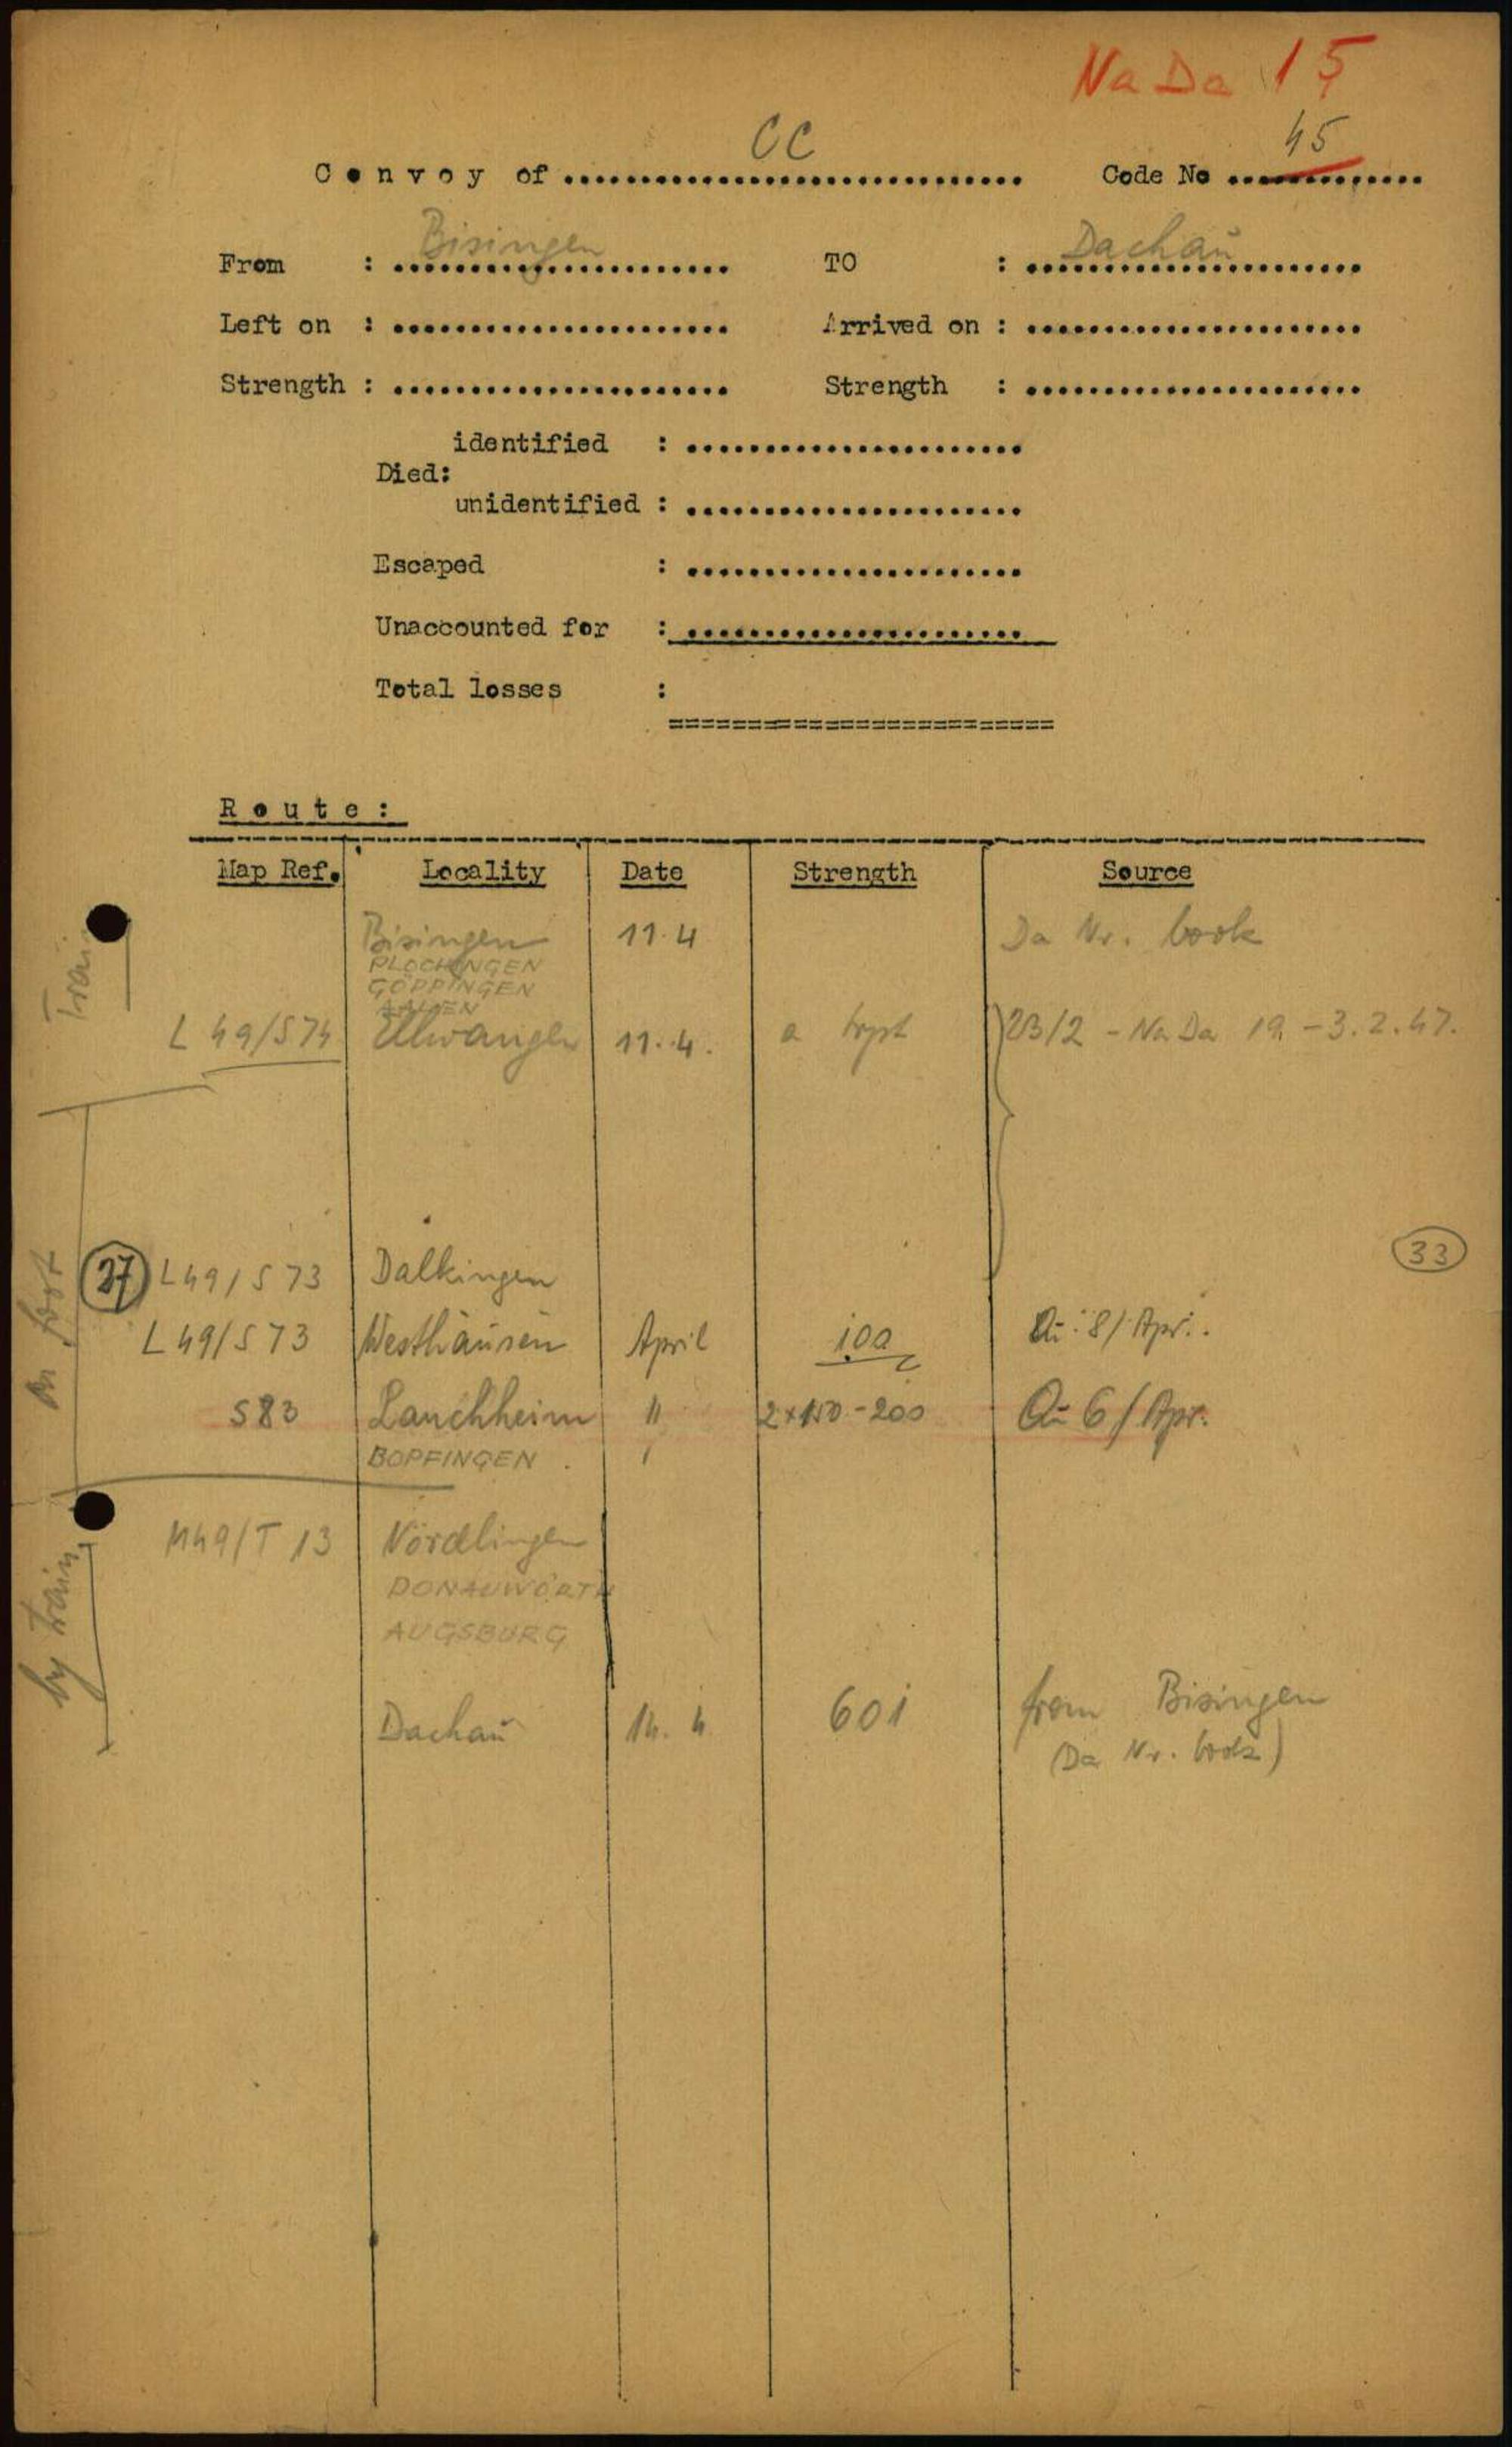 Na Da 15
CC 45
Convoy of .............................. Code No .............
From : Bisingen TO : Dachau
Left on : ...................... Arrived on : ......................
Strength : ...................... Strength : ......................
identified : ......................
Died:
unidentified : ......................
Escaped : ......................
Unaccounted for : ......................
Total losses :
=========================
Route:
Map Ref. Locality Date Strength Source
Train
Bisingen 11.4 Da Nr. book
PLOCHINGEN
GÖPPINGEN
AALEN
L 49/S74 Ellwangen 11.4. a trpt 23/2 - Na Da 19 - 3.2.47.
33
on foot
37 L49/S 73 Dalkingen
L 49/S 73 Westhausen April 100 Qu 8/Apr.
S83 Lauchheim " 2x150-200 Qu 6/Apr.
BOPFINGEN
by train
M49/T 13 Nördlingen
DONAUWÖRTH
AUGSBURG
Dachau 14. 4. 601 from Bisingen
(Da Nr. book)